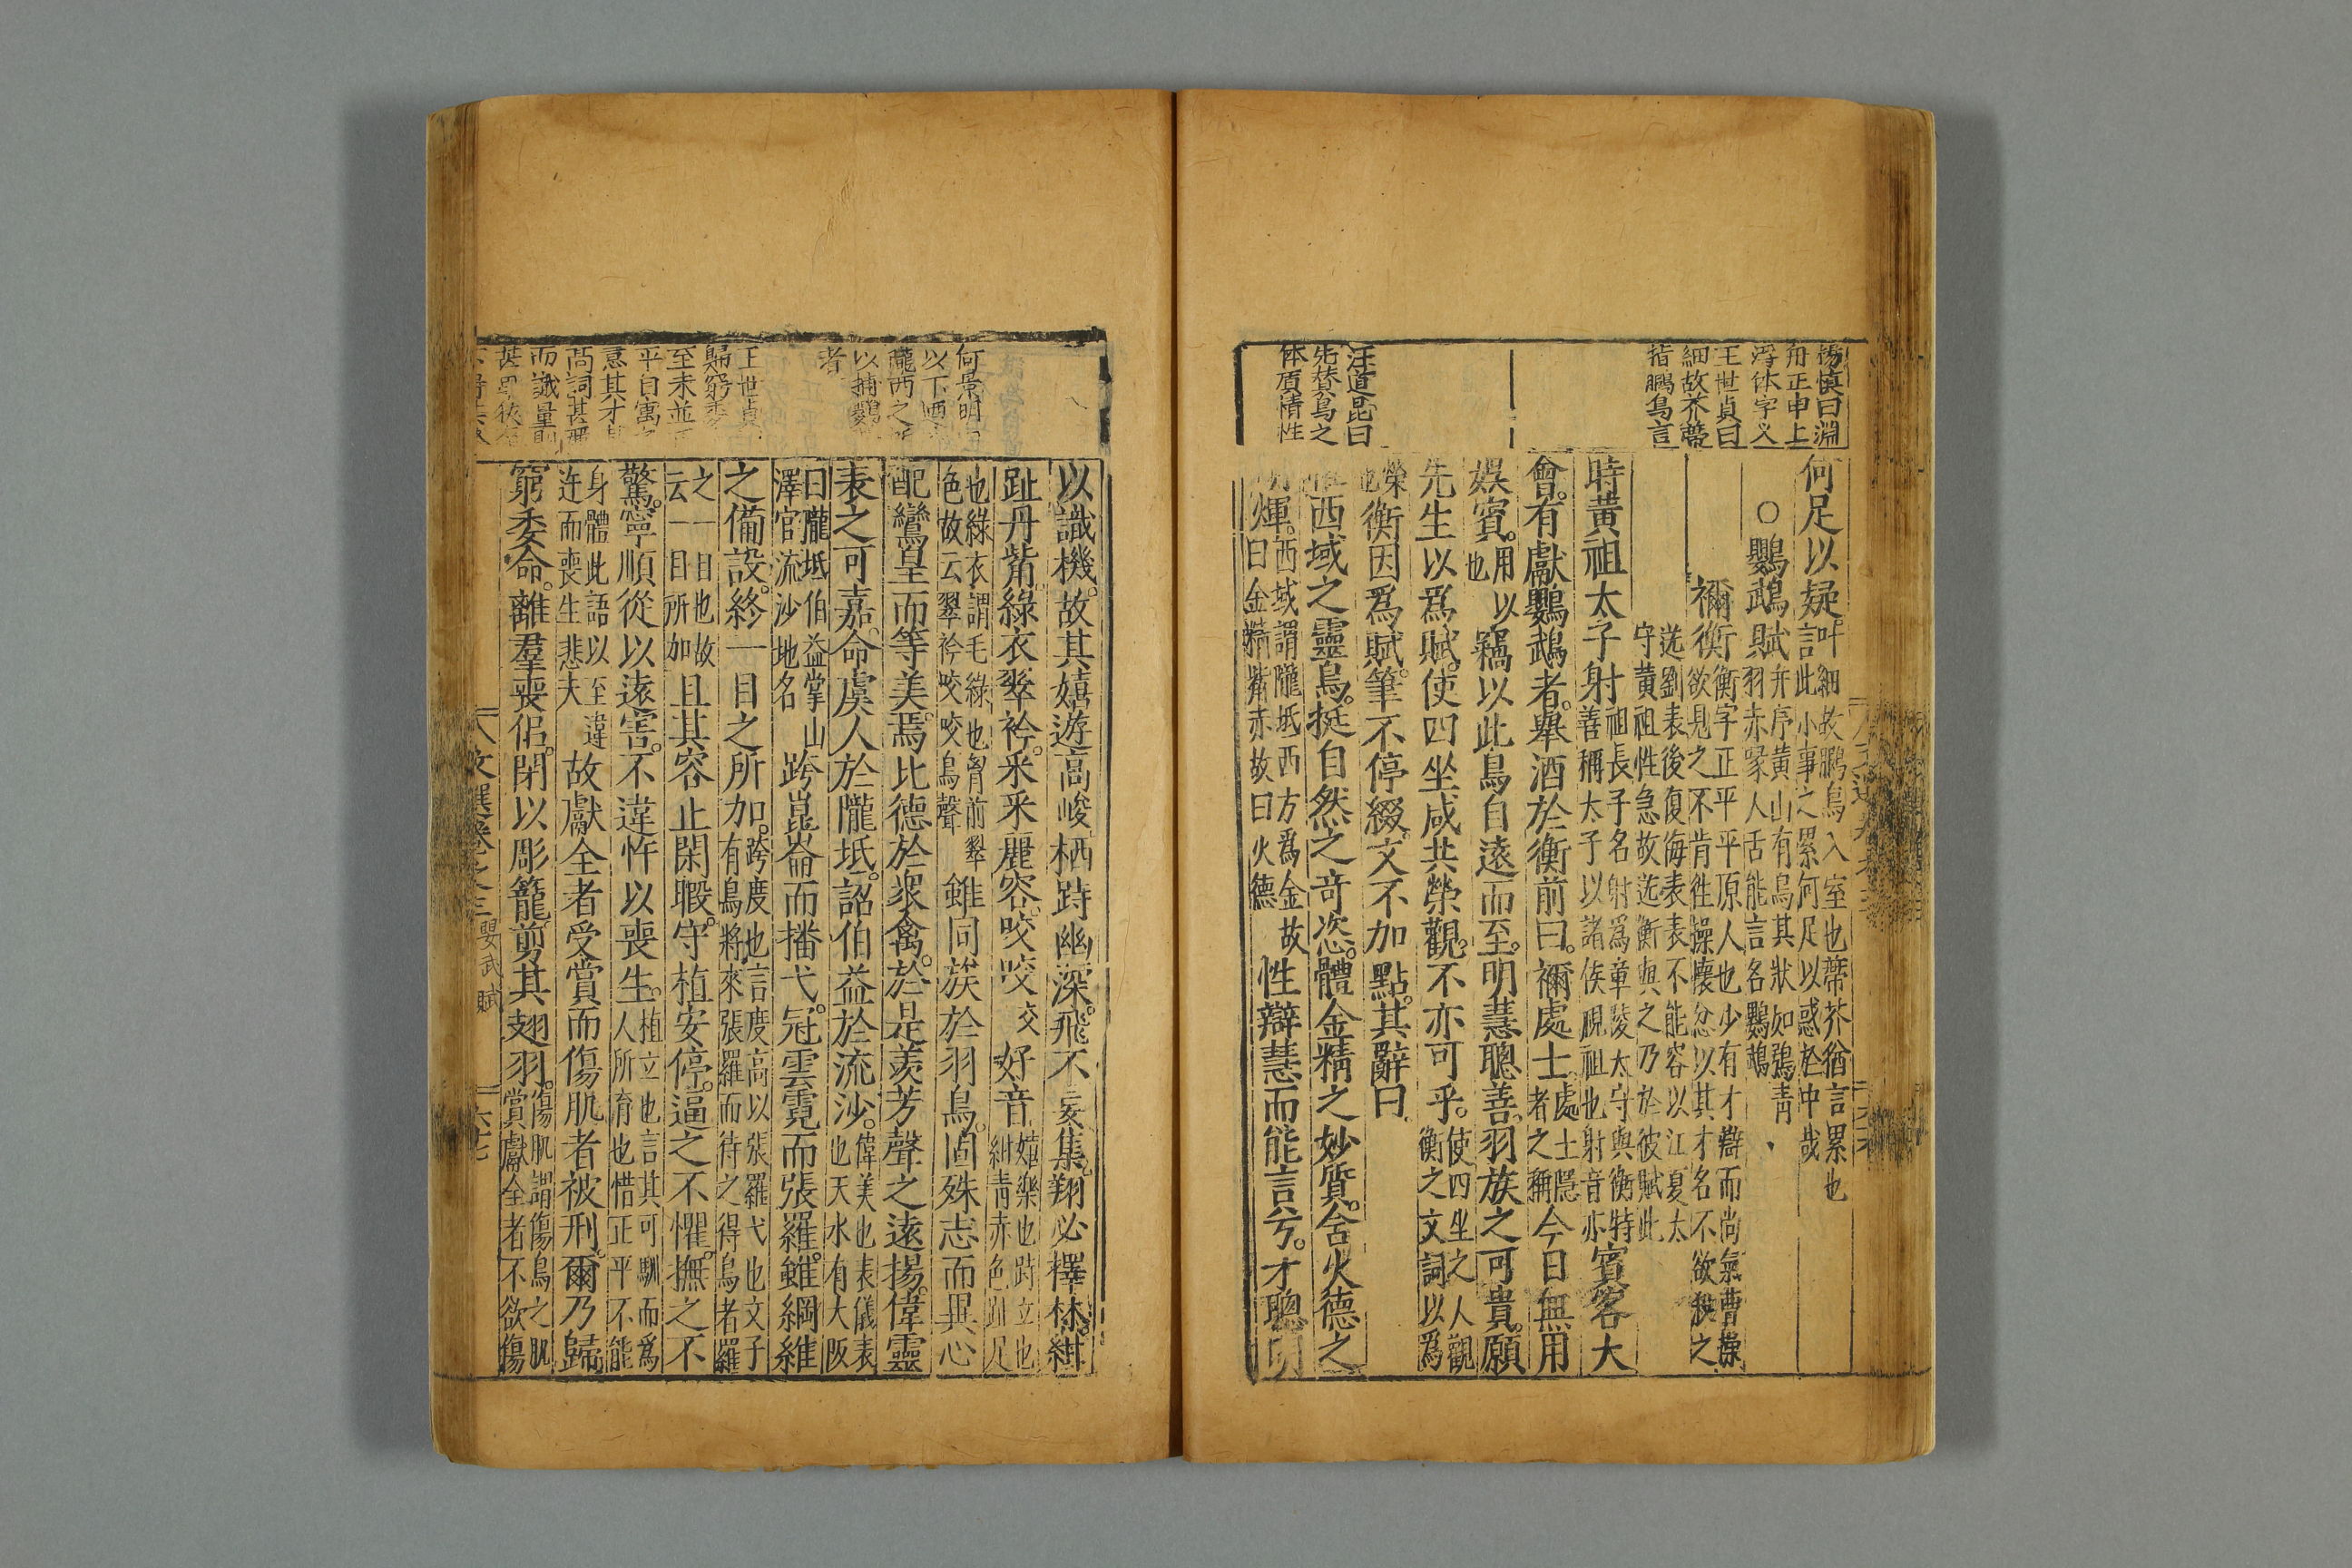 楊慎曰淵
舟正申上
浮休字义
王世貞曰
細故芥蔕
指鵩鳥言
汪道昆曰
先賛鳥之
体質情性
何足以疑叶言
細故鵩鳥入室也蔕芥猶言累也
此小事之累何足以惑於中哉
○鸚鵡賦
并序黄山有鳥其狀如鴞青
羽赤喙人舌能言名鸚鵡
禰衡
衡字正平平原人也少有才辯而尚氣曹操
欲見之不肯徃操懐忿以其才名不欲殺之
送劉表後復侮表表不能容以江夏太
守黄祖性急故送衡與之乃於彼賦此
時黃祖太子射
祖長子名射爲章陵太守與衡特
善稱太子以諸侯視祖也射音亦
賓客大
會有獻鸚鵡者舉酒於衡前曰禰處士
處士隱
者之稱
今日無用
娛賓
用以
也
竊以此鳥自遠而至明慧聰善羽族之可貴願
先生以爲賦使四坐咸共榮觀不亦可乎
使四坐之人觀
衡之文詞以爲
榮
也
衡因爲賦筆不停綴文不加點其辭曰
西域之靈鳥挺自然之奇姿體金精之妙質含火德之
煇
西域謂隴坻西方爲金故
曰金精觜赤故曰火德
性辯慧而能言兮才聰明
以識機故其嬉遊高峻栖跱幽深飛不妄集翔必擇林紺
趾丹觜綠衣翠衿采采麗容咬咬交好音
嬉樂也跱立也
紺青赤色趾足
也綠衣謂毛綠也胷前翠
色故云翠衿咬咬鳥聲
雖同族於羽鳥固殊志而異心
配鸞皇而等美焉比德於衆禽於是羨芳聲之遠揚偉靈
表之可嘉命虞人於隴坻詔伯益於流沙
偉美也表儀表
也天水有大阪
曰隴坻伯益掌山
澤官流沙地名
跨崑崙而播弋冠雲霓而張羅雖綱維
之備設終一目之所加
跨度也言度高以張羅弋也文子
有鳥將來張羅而待之得鳥者羅
之一目也故
云一目所加
且其容止閑暇守植安停逼之不懼撫之不
驚寧順從以遠害不違忤以喪生
植立也言其可馴而爲
人所育也惜正平不能
身體此語以至違
迕而喪生悲夫
故獻全者受賞而傷肌者被刑爾乃歸
窮委命離羣喪侶閉以彫籠剪其翅羽
傷肌謂傷鳥之肌
賞獻全者不欲傷
何景明曰
以下
隴西之
以捕鸚
者
王世貞
歸窮委
至未並
平自寓
意其才
高詞甚
而識量
文選卷之三
鸚武賦
六七